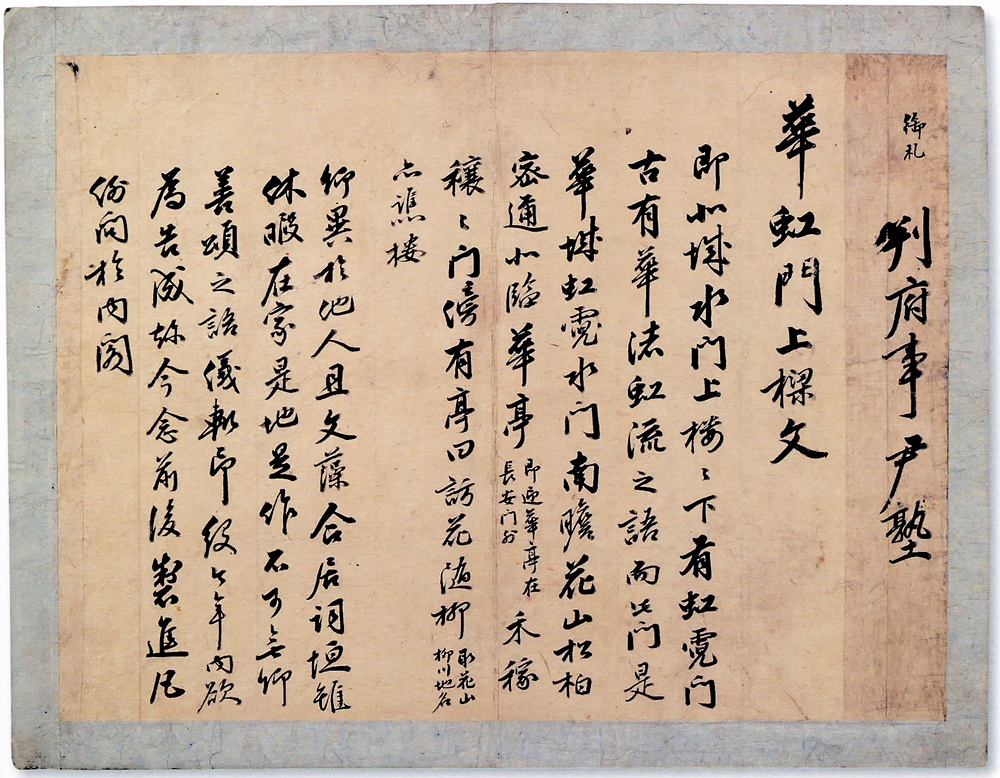 御札
判府事 尹塾
華虹門上樑文
即北城水門上楼〻下有虹霓門
古有華渚虹流之語而此門是
華城虹霓水門南瞻花山松柏
密邇北臨華亭 即迎華亭在長安门外 禾稼
穰〻门傍有亭曰訪花随柳 取花山柳川地名
亦譙楼
卿異於他人且文藻合居词垣雖
休暇在家是地是作不可無卿
善頌之語儀軌印役今年内欲
為告成故今念前後製進凡
例向於内閣